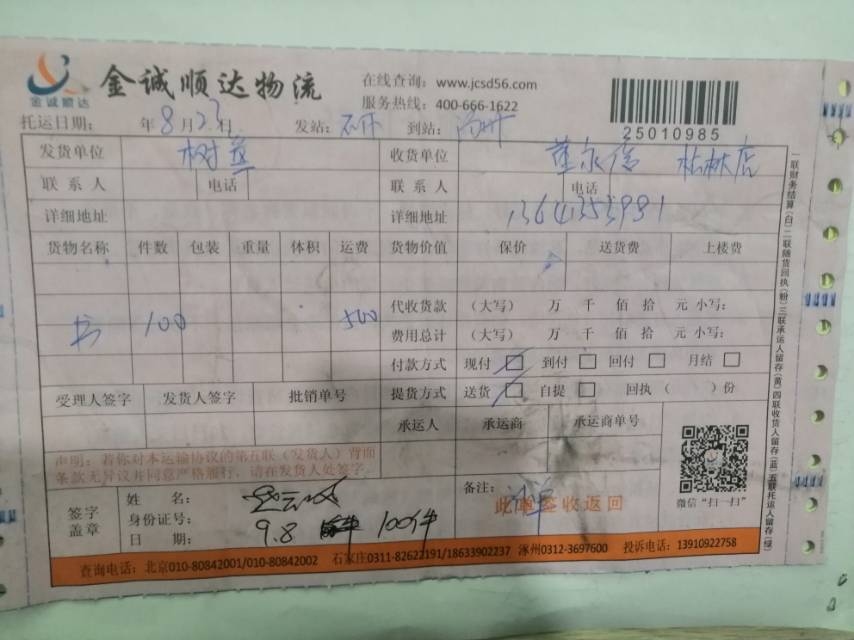 金诚顺达物流
金诚顺达
在线查询：www.jcsd56.com
服务热线：400-666-1622
25010985
托运日期： 年8月23日 发站： 到站：
发货单位 收货单位
联系人 电话 联系人 电话
详细地址 详细地址
货物名称 件数 包装 重量 体积 运费 货物价值 保价 送货费 上楼费
代收货款 （大写） 万 千 佰 拾 元 小写：
书 100 500 费用总计 （大写） 万 千 佰 拾 元 小写：
付款方式 现付 到付 回付 月结
受理人签字 发货人签字 批销单号 提货方式 送货 自提 回执（ ）份
承运人 承运商 承运商单号
声明：若你对本运输协议的第五联（发货人）背面
条款无异议并同意严格履行，请在发货人处签字。
签字
盖章
姓 名：
身份证号：
日 期： 9.8 100件
备注：
此单签收返回
微信“扫一扫”
查询电话：北京010-80842001/010-80842002 石家庄0311-82622191/18633902237 涿州0312-3697600 投诉电话：13910922758
一联财务结算(白)二联随货回执(粉)三联承运人留存(黄)四联收货人留存(蓝)五联托运人留存(绿)